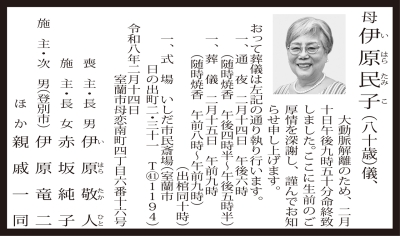 母 伊原民子(八十歳)儀、
い はら たみ こ
大動脈解離のため、二月
十日午後九時五十分命終致
しました。ここに生前のご
厚情を深謝し、謹んでお知
らせ申し上げます。
おって葬儀は左記の通り執り行います。
一、通 夜 二月十四日 午後六時
(随時焼香 午後四時半~午後五時半)
一、葬 儀 二月十五日 午前九時
(随時焼香 午前八時~午前九時)
(出棺同十時)
一、式 場 いしだ市民斎場(室蘭市
日の出町二・三十一 T㊶1194)
令和八年二月十四日
室蘭市母恋南町四丁目六番十六号
喪主・長男 伊原敬人
い はら たか ひと
施主・長女 赤坂純子
施主・次男(登別市) 伊原竜二
ほか 親戚一同